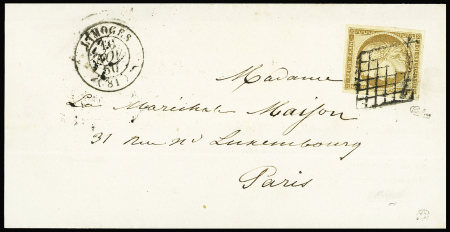 LIMOGES
16
50
(81)
Madame
La Maréchale Maison
31 rue N. Luxembourg
Paris